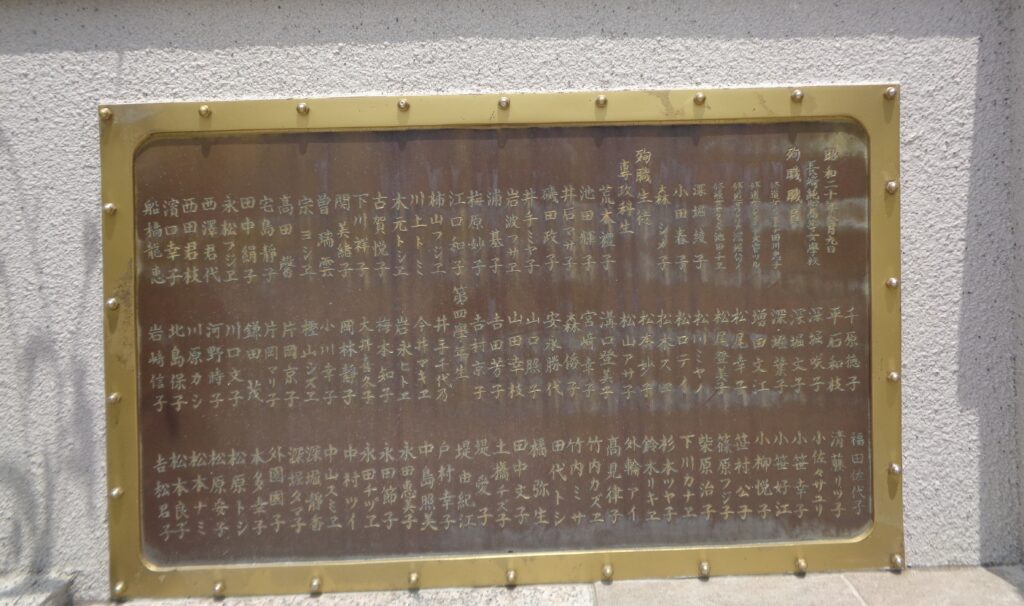 昭和二十年八月九日
殉職職員
深堀綾子
小田春子
森 シメ子
殉職生徒
専攻科生
池田輝子
井石マサ子
磯田政子
岩波フサヱ
浦 基子
梅原妙子
江口和子
柿山フシヱ
川上トミ
木元トシヱ
古賀悦子
下川祥子
関 美緒子
曽 瑞雲
宗 ヨシヱ
高田 誉
宅島靜子
田中絹子
永松フジヱ
西澤君代
西田君枝
濱口幸子
船橋龍恵
千原徳子
平石和枝
深堀咲子
深堀文子
深堀葉子
増田文江
松尾幸子
松尾登美子
松川ミヤノ
松口テイ
松本妙子
松山アサ子
溝口登美子
宮崎章子
森 倭子
安永勝代
山口照子
山田幸枝
吉田芳子
吉村京子
第四學年生
井手千代乃
今井マキヱ
岩永ヒトヱ
梅本和子
大井喜久子
岡林靜子
小川幸子
樫山シズヱ
片岡京子
片岡マリ子
鎌田 茂
川口文子
河野時子
川原カシ
北島保子
岩崎信子
福田佐代子
清藤リツ子
小佐々サユリ
小笹幸子
小笹好江
小柳悦子
笹村公子
篠原フジ子
柴原治子
下川カナヱ
杉本ツヤ子
鈴木リキヱ
外輪アイ
高見律子
竹内カズヱ
竹内ミサ
田代トシ
橘 弥生
田中文子
土橋チズ子
堤 愛子
堤 由紀江
戸村幸子
中島照美
永田恵美子
永田節子
永田チヅヱ
中村ツイ
中山スミヱ
深堀靜香
深堀タマ子
外園園子
本多安子
松原トシ
松原安子
松本ナミ
松本良子
吉松君子